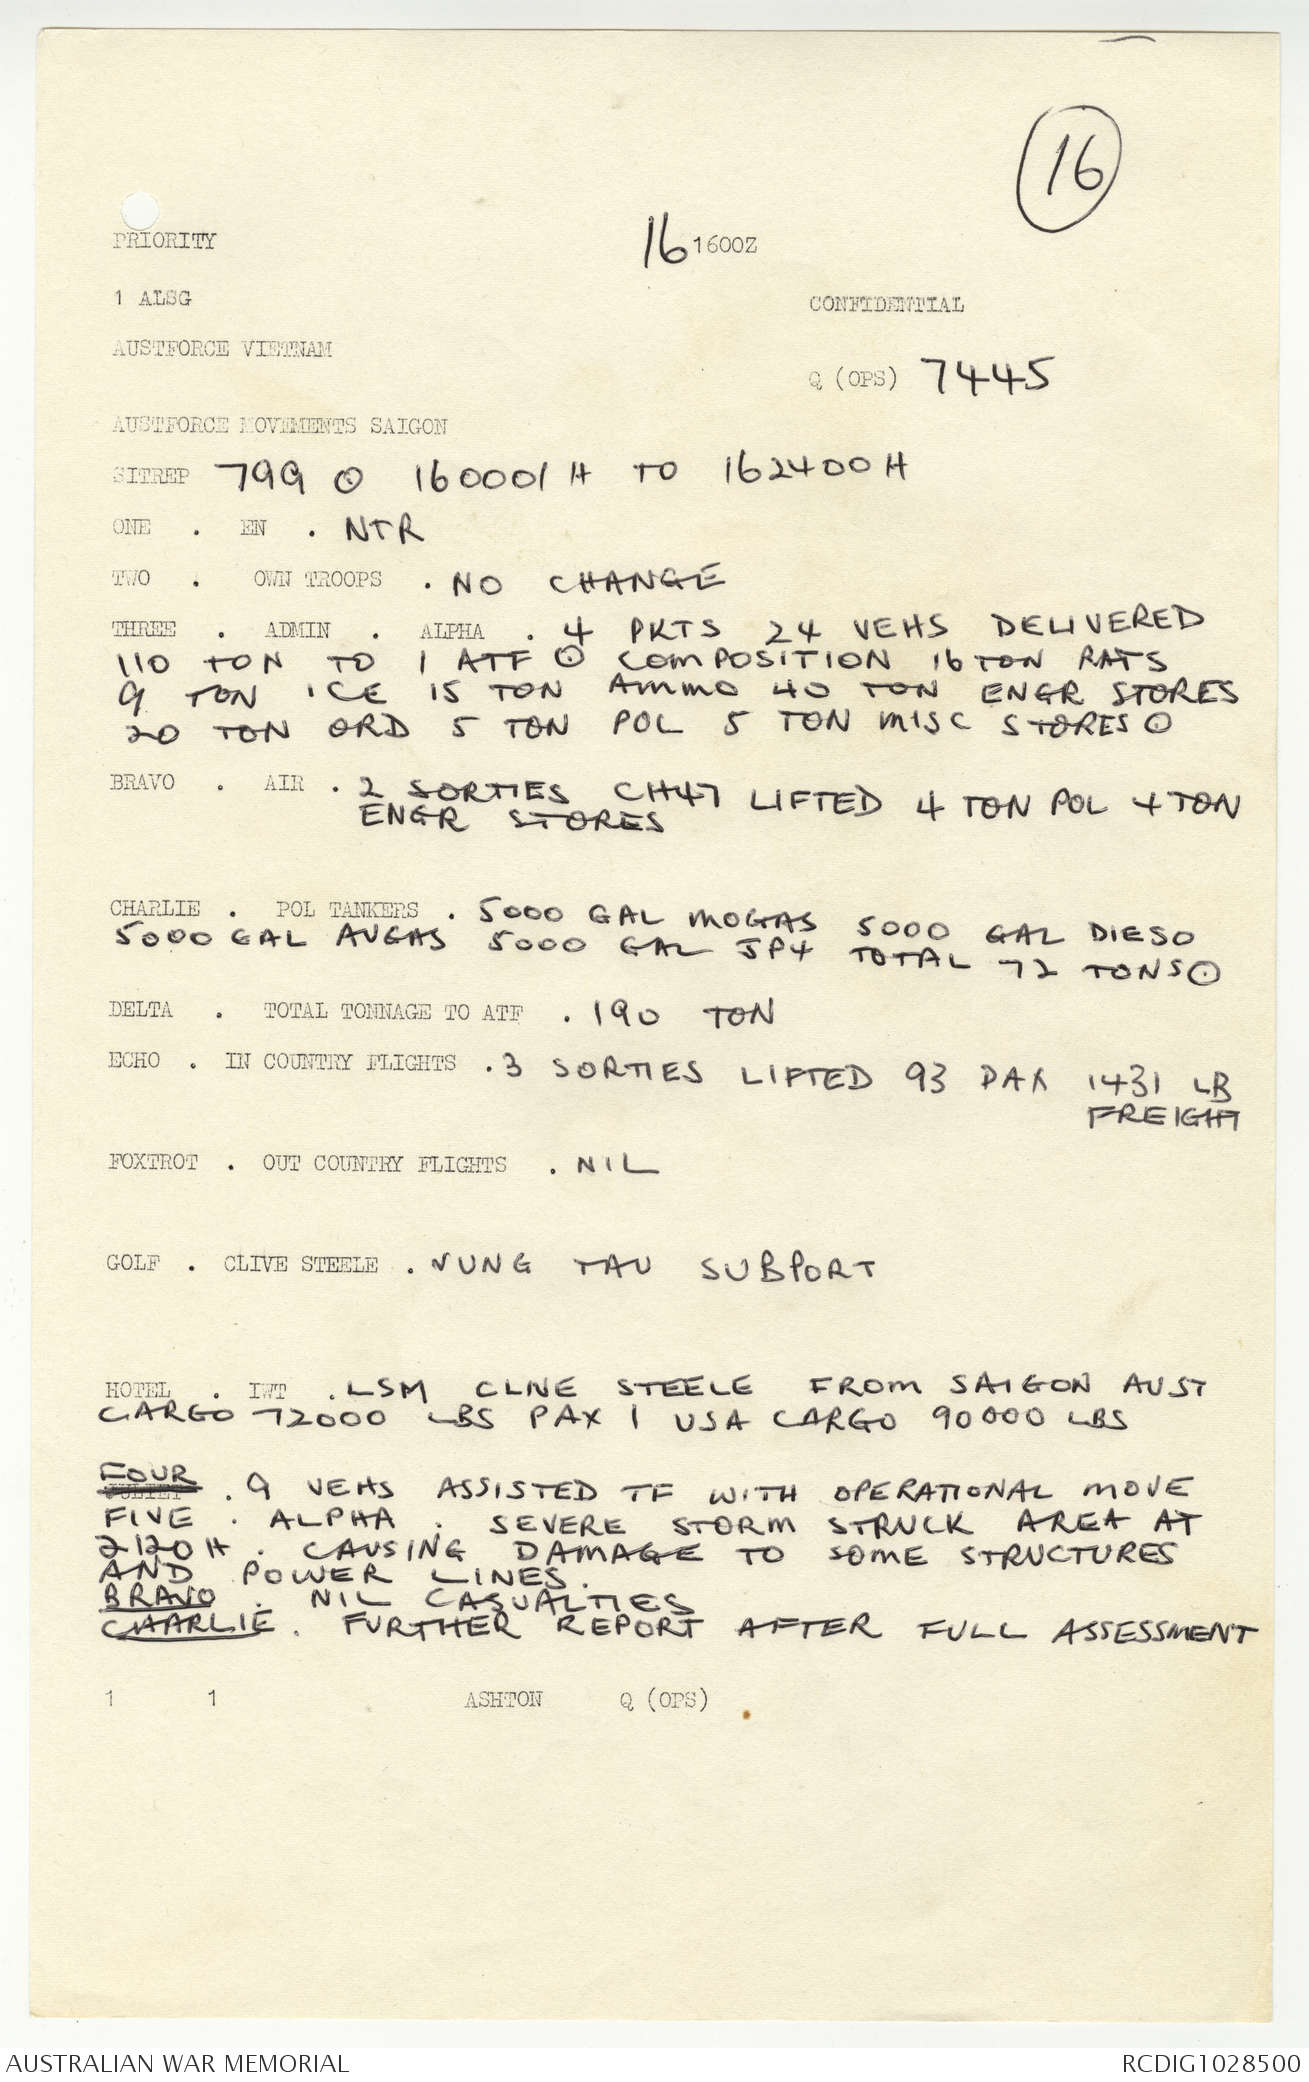 16
PRIORITY
16 1600Z
1 ALSG
CONFIDENTIAL
AUSTFORCE VIETNAM
Q (OPS) 7445
AUSTFORCE MOVEMENTS SAIGON
SITREP 799 ⊙ 160001H TO 162400H
ONE . EN . NTR
TWO . OWN TROOPS . NO CHANGE
THREE . ADMIN . ALPHA . 4 PKTS 24 VEHS DELIVERED
110 TON TO 1 ATF ⊙ COMPOSITION 16 TON RATS
9 TON ICE 15 TON AMMO 40 TON ENGR STORES
20 TON ORD 5 TON POL 5 TON MISC STORES ⊙
BRAVO . AIR . 2 SORTIES CH47 LIFTED 4 TON POL 4 TON
ENGR STORES
CHARLIE . POL TANKERS . 5000 GAL MOGAS 5000 GAL DIESO
5000 GAL AVGAS 5000 GAL JP4 TOTAL 72 TONS ⊙
DELTA . TOTAL TONNAGE TO ATF . 190 TON
ECHO . IN COUNTRY FLIGHTS . 3 SORTIES LIFTED 93 PAX 1431 LB
FREIGHT
FOXTROT . OUT COUNTRY FLIGHTS . NIL
GOLF . CLIVE STEELE . VUNG TAU SUBPORT
HOTEL . IWT . LSM CLIVE STEELE FROM SAIGON AUST
CARGO 72000 LBS PAX 1 USA CARGO 90000 LBS
FOUR
JULIET . 9 VEHS ASSISTED TF WITH OPERATIONAL MOVE
FIVE . ALPHA . SEVERE STORM STRUCK AREA AT
2120H . CAUSING DAMAGE TO SOME STRUCTURES
AND POWER LINES.
BRAVO . NIL CASUALTIES
CHARLIE . FURTHER REPORT AFTER FULL ASSESSMENT
1 1 ASHTON Q (OPS)
AUSTRALIAN WAR MEMORIAL
RCDIG1028500